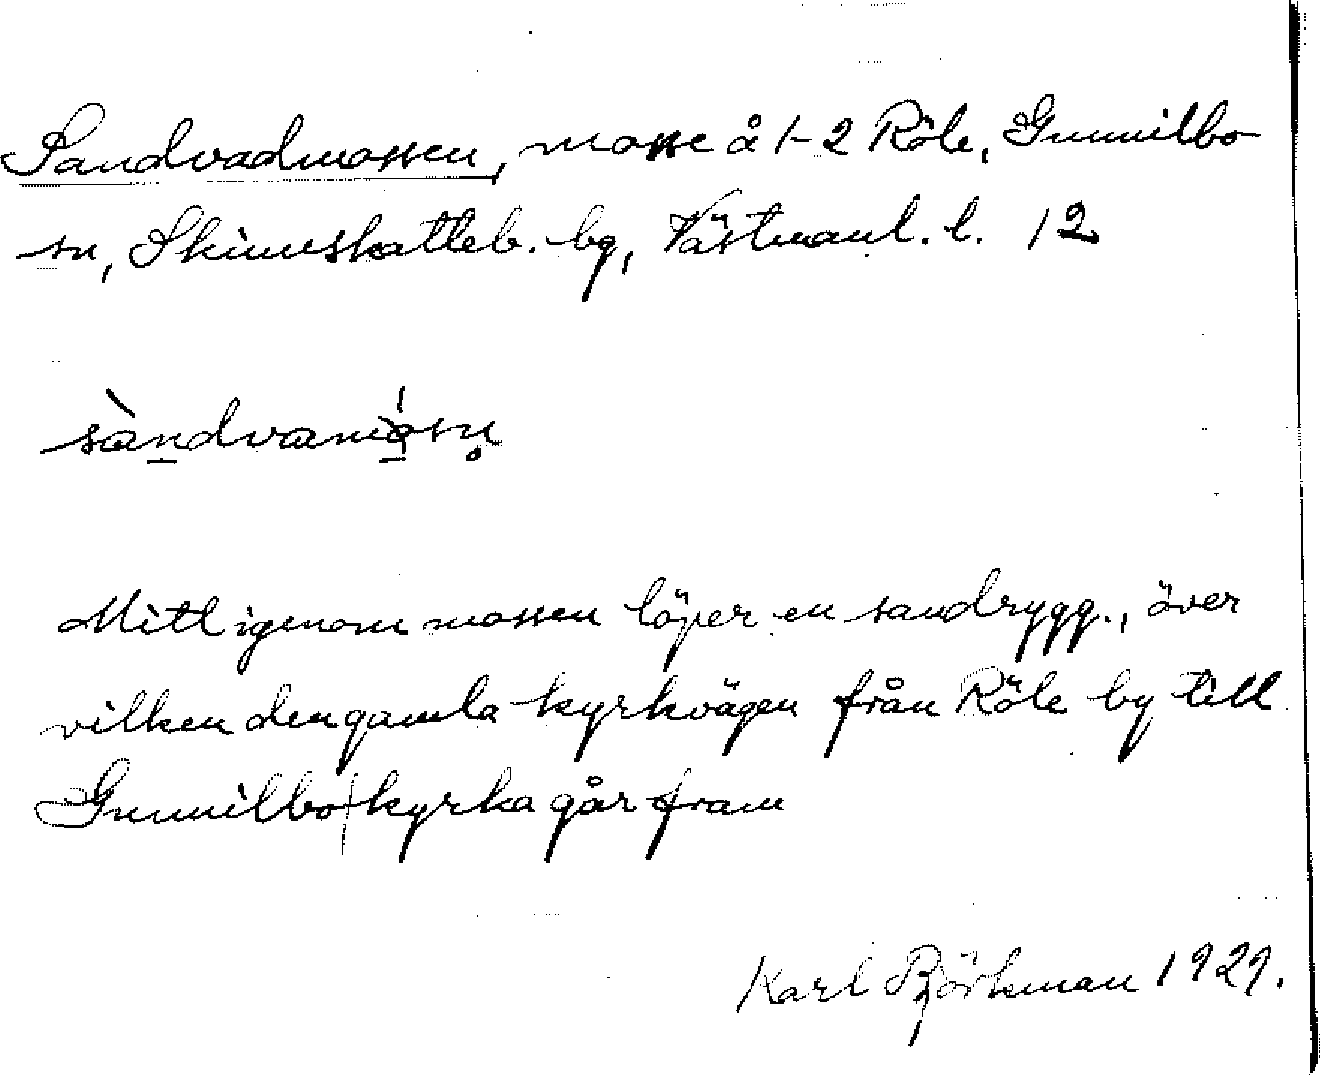 Sandvadmossen, mosse å 1-2 Röle, Gunnilbo
sn, Skinnskatteb. bg, Västmanl. l. 12
sàndvamósn̥
Mitt igenom mossen löper en sandrygg., över
vilken den gamla kyrkvägen från Röle by till
Gunnilbo kyrka går fram
Karl Björkman 1929.